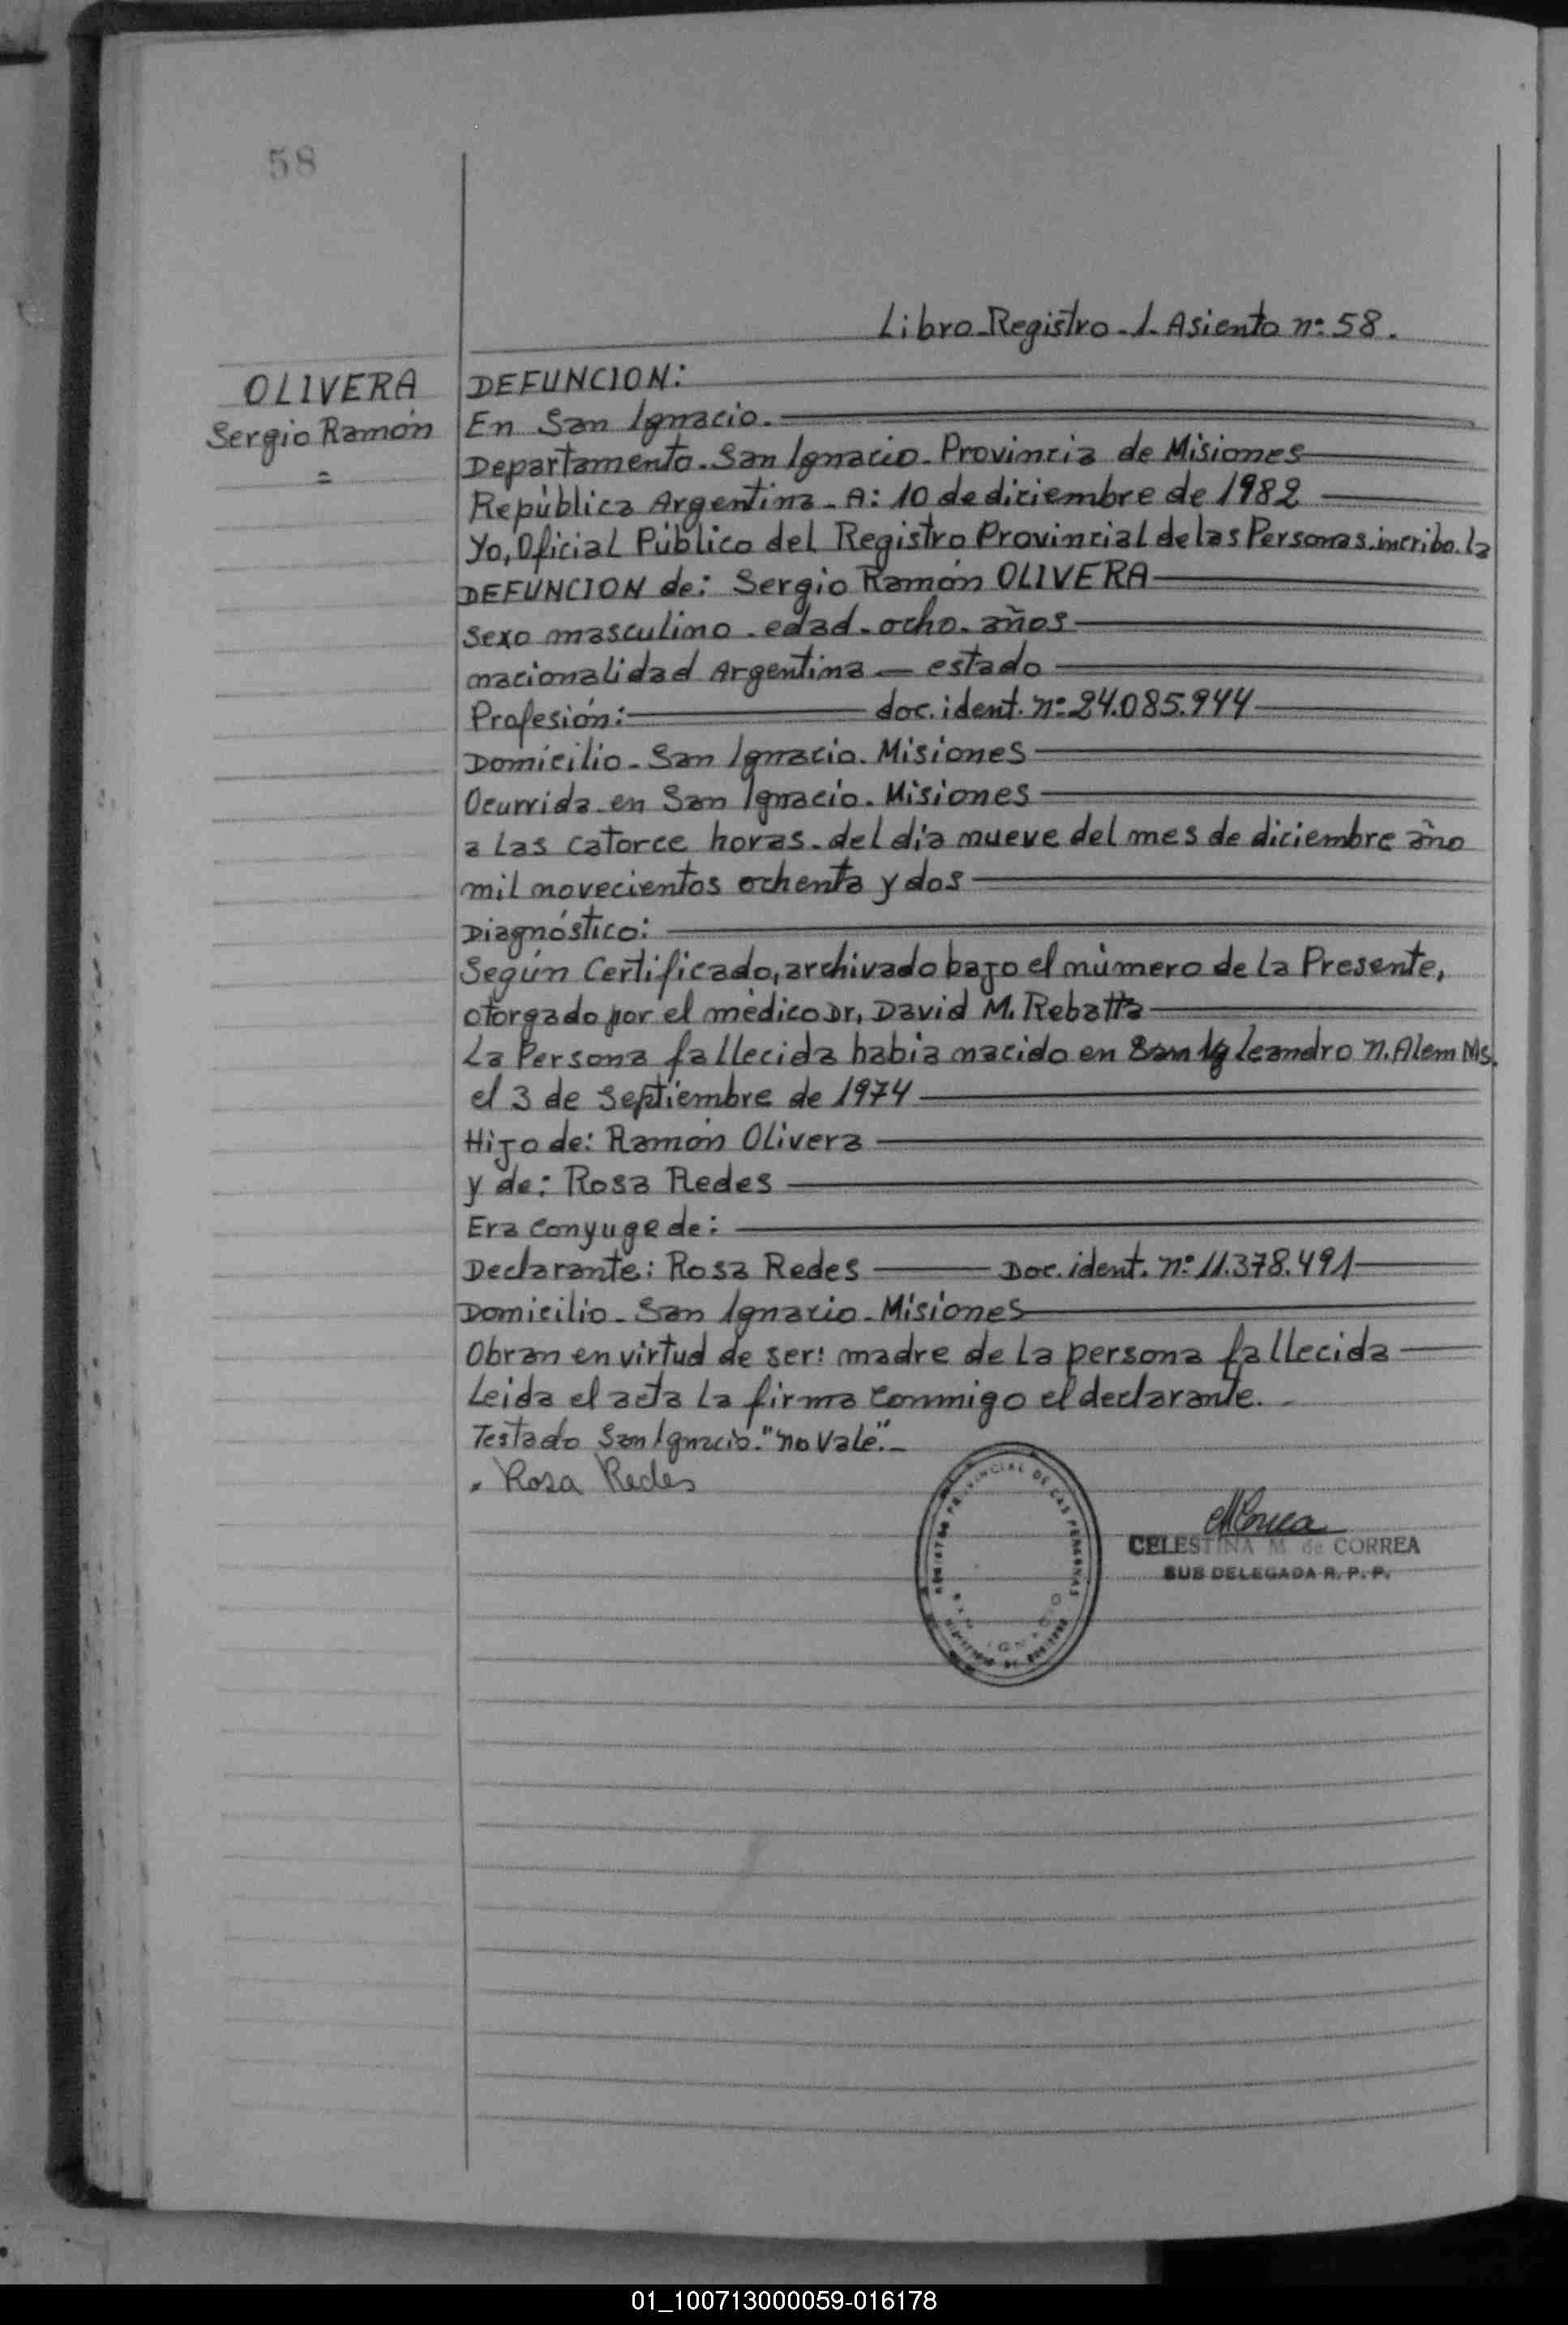 58
Libro Registro - 1 - Asiento nº 58.
OLIVERA
Sergio Ramón
=
DEFUNCION:
En San Ignacio.
Departamento. San Ignacio - Provincia de Misiones
República Argentina - A: 10 de diciembre de 1982
Yo, Oficial Público del Registro Provincial de las Personas. incribo. la
DEFUNCION de: Sergio Ramón OLIVERA
Sexo masculino. edad - ocho - años
nacionalidad Argentina — estado
Profesión: doc. ident. nº 24.085.944
Domicilio - San Ignacio. Misiones
Ocurrida en San Ignacio. Misiones
a las catorce horas - del día nueve del mes de diciembre año
mil novecientos ochenta y dos
Diagnóstico:
Según Certificado, archivado bajo el número de la Presente,
otorgado por el médico Dr, David M. Rebatta
La Persona fallecida habia nacido en San Ig Leandro N. Alem Ms.
el 3 de Septiembre de 1974
Hijo de: Ramón Olivera
y de: Rosa Redes
Era conyuge de:
Declarante: Rosa Redes — Doc. ident. nº 11.378.491
Domicilio - San Ignacio - Misiones
Obran en virtud de ser: madre de la persona fallecida
Leida el acta la firma conmigo el declarante. -
Testado San Ignacio. "no Vale". -
. Rosa Redes
PROVINCIAL DE LAS PERSONAS
SAN IGNACIO
CELESTINA M. de CORREA
SUB DELEGADA R. P. P.
01_100713000059-016178